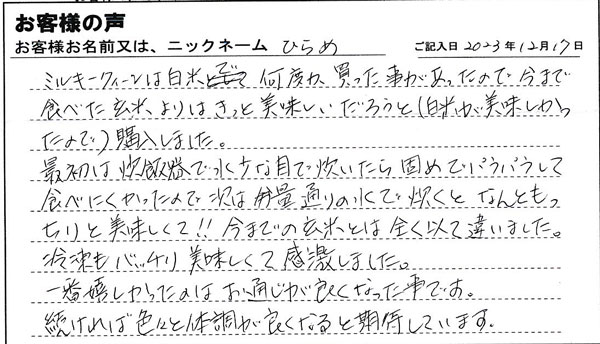 お客様の声
お客様お名前又は、ニックネーム ひらめ ご記入日 2023年12月17日
ミルキークィーンは白米で何度か買った事があったので今まで
食べた玄米よりはきっと美味しいだろうと(白米が美味しかっ
たので)購入しました。
最初は炊飯器で水少な目で炊いたら固めでパラパラして
食べにくかったので次は分量通りの水で炊くとなんともっ
ちりと美味しくて!!今までの玄米とは全く以て違いました。
冷凍もバッチリ美味しくて感激しました。
一番嬉しかったのはお通じが良くなった事です。
続ければ色々と体調が良くなると期待しています.